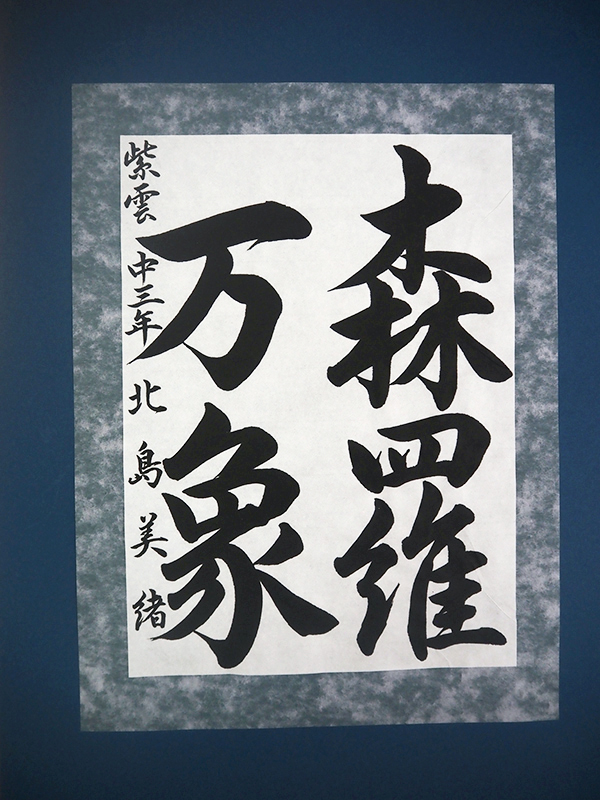 森羅
万象
紫雲 中三年 北島美緒